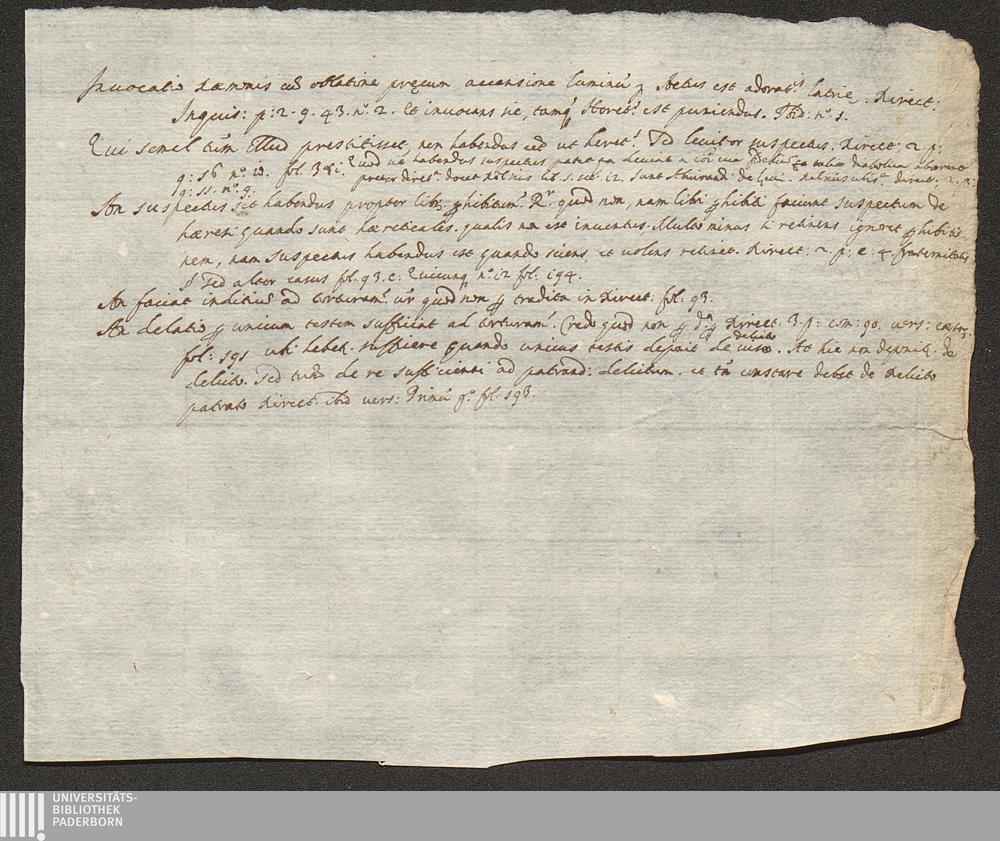 Invocatio dæmonis cũ oblatione precum accensione luminũ p Actus est adorat.s latriæ. Direct:
Inquis: p: 2. q. 43. n.o 2. Et invocans sic, tamq Heret.s est puniendus. Ibid: n.o 1.
Qui semel tũm Illud prestitisset, non habendus est ut heret.s Sed leviter suspectus. Direct: 2. p:
q: 56 n.o fol. 381. Quod uero habendus suspectus
q: 55. n.o 9. preter direct. docet
An suspectus sit habendus propter libr. phibitum. R.r quod non, nam libri phibiti faciunt suspectum de
hæresi quando sunt hæreticales. qualis non est inventus. Multo minus si retinens ignoret phibitio-
nem, nam suspectus habendus est quando sciens, et volens retinet. Direct: 2. p: c: 4. fraternitatis.
Sed alter casus fol. 93. c: Quicunq n.o 12 fol. 194.
An faciat inditiũ ad torturam. vr quod non p tradita in Direct: fol: 93.
An delatio p unicum testem sufficiat ad torturam. Credo quod non p Direct. 3. p: com: 90. vers:
fol: 591 ubi habet. sufficere quando unicus testis deponit de viso delicto. At hic non deponit de
delicto. Sed tũ de re sufficienti ad patrand: delictum. et tñ constare debet de delicto
patrato Direct: ibid vers: Primũ g.o fol. 593.
UNIVERSITÄTS-
BIBLIOTHEK
PADERBORN